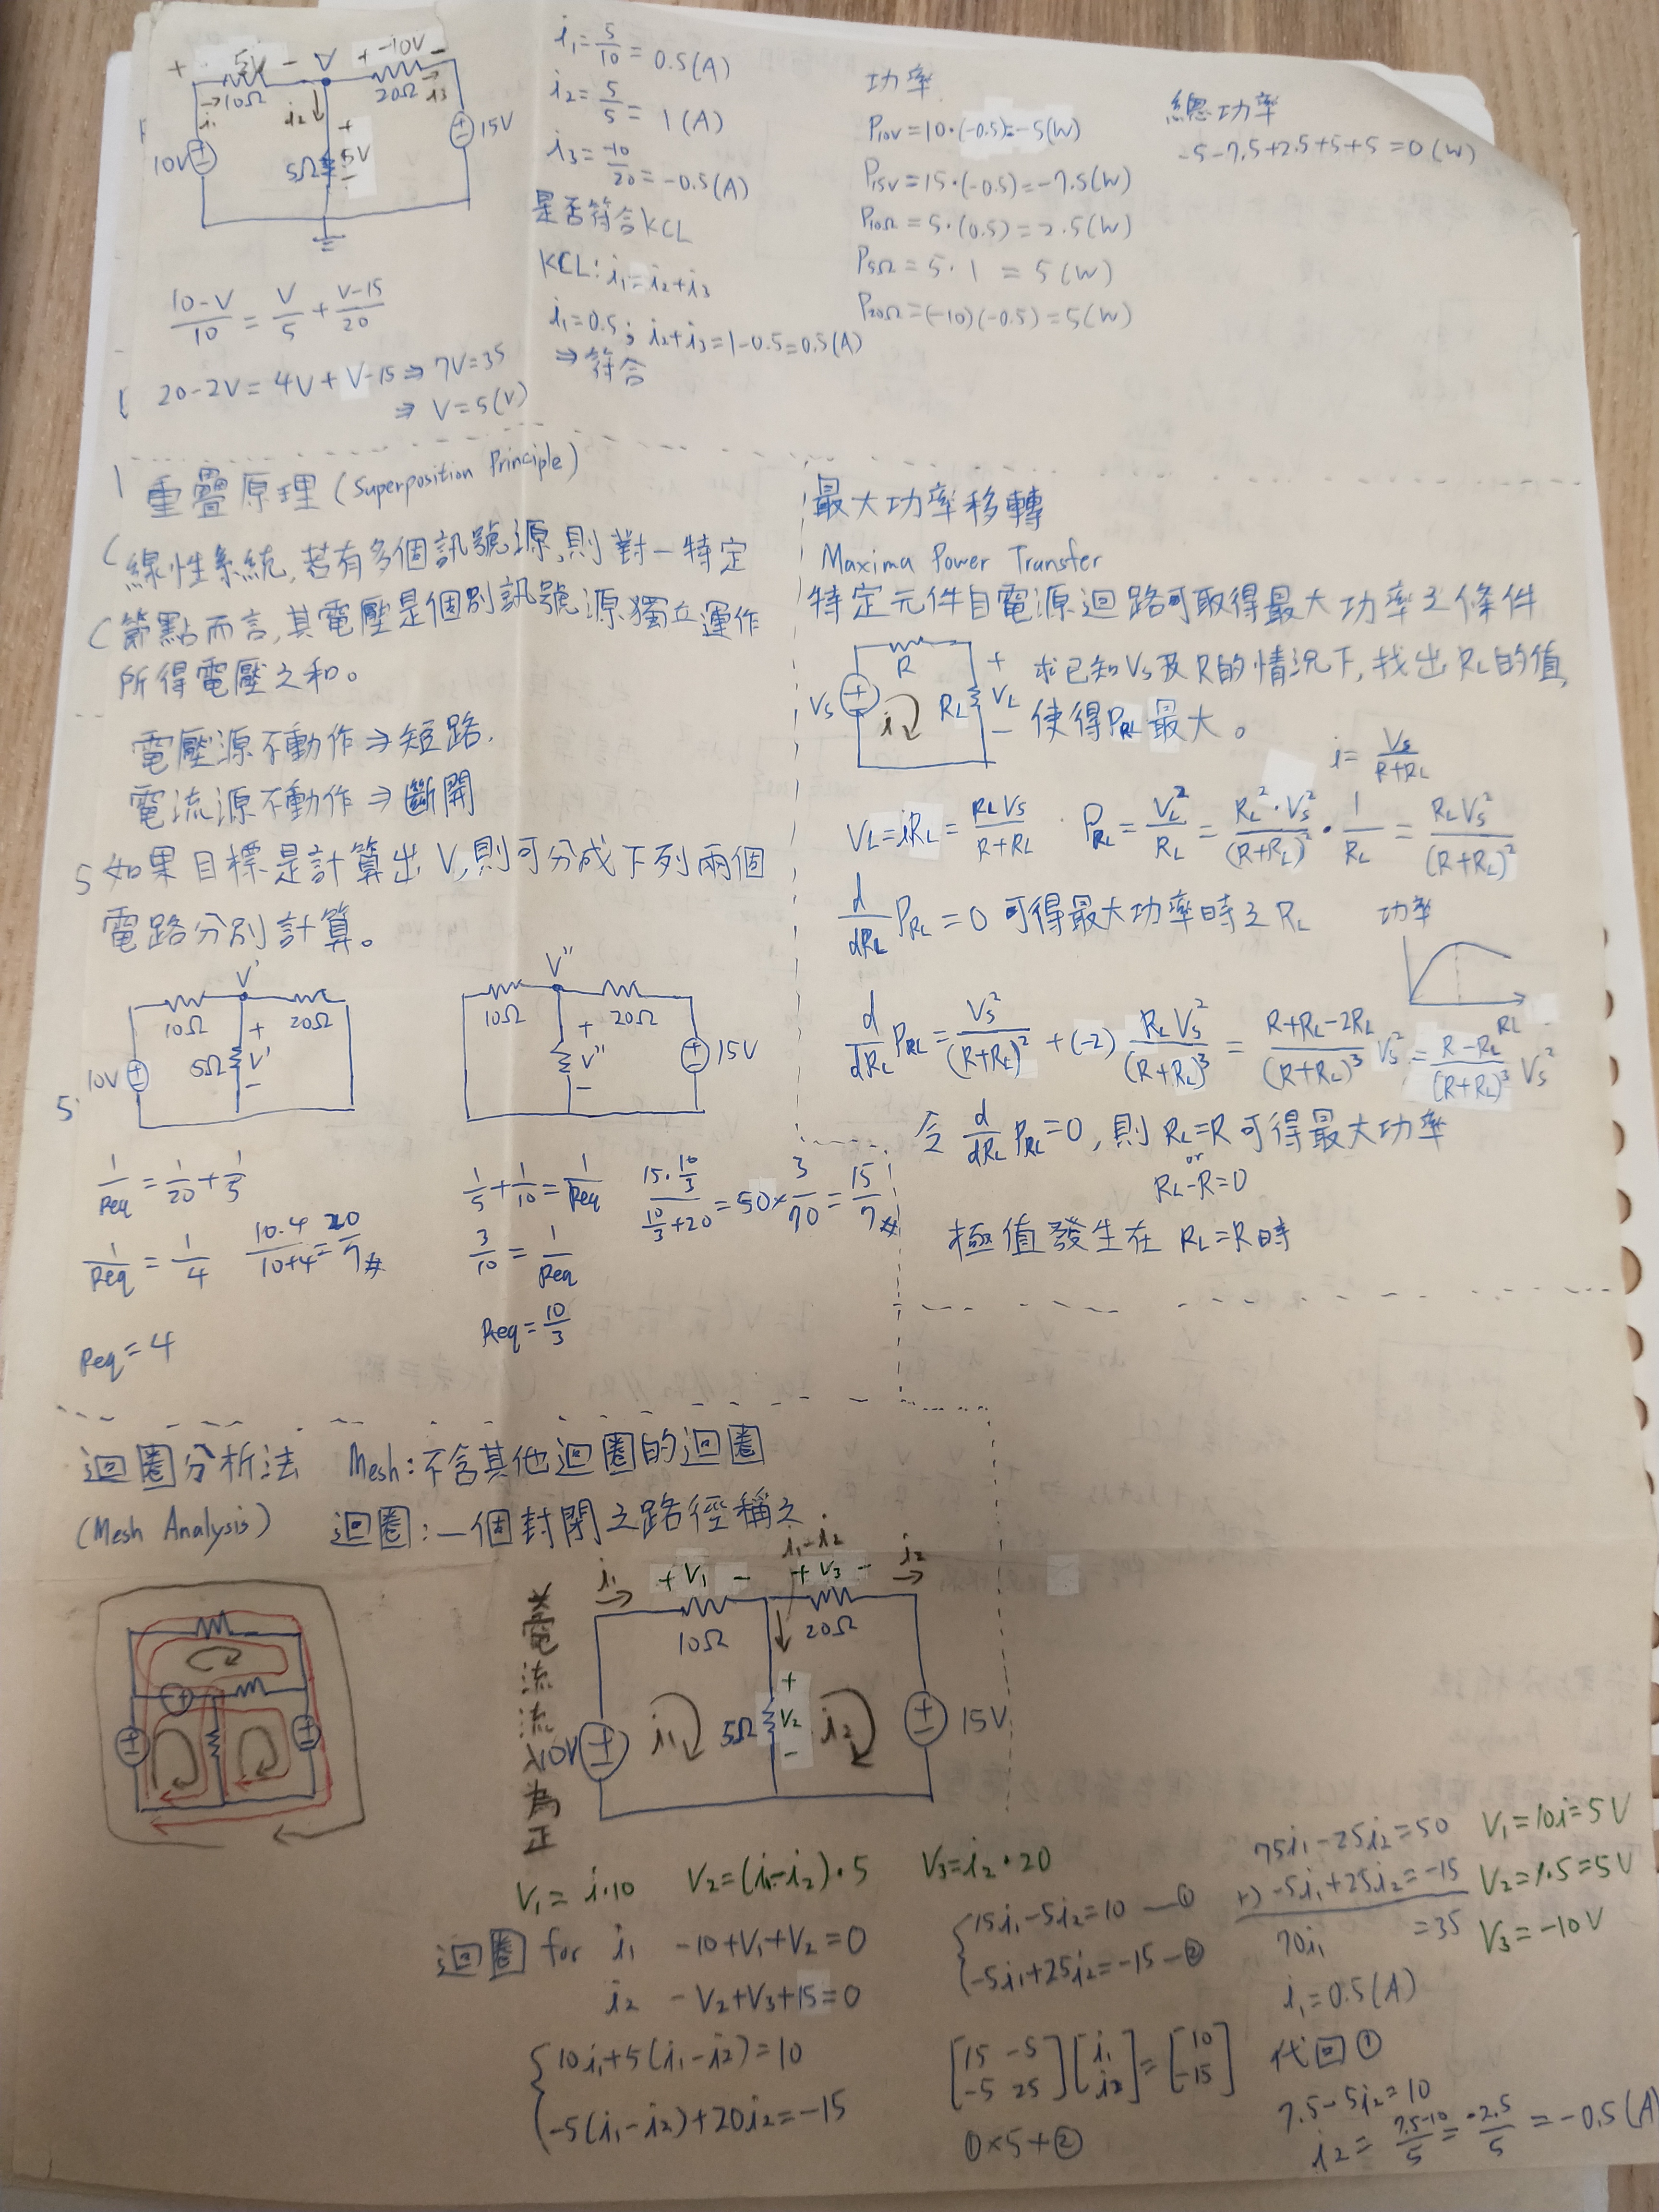 + 5V - V + -10V -
10Ω 20Ω
i₁ i₂ i₃
10V 5Ω + 5V - 15V
(10-V)/10 = V/5 + (V-15)/20
20-2V = 4V + V-15 ⇒ 7V=35
⇒ V=5(V)
i₁ = 5/10 = 0.5(A)
i₂ = 5/5 = 1(A)
i₃ = -10/20 = -0.5(A)
是否符合KCL
KCL: i₁=i₂+i₃
i₁=0.5; i₂+i₃=1-0.5=0.5(A)
⇒ 符合
功率
P10V = 10·(-0.5)=-5(W)
P15V = 15·(-0.5)=-7.5(W)
P10Ω = 5·(0.5)=2.5(W)
P5Ω = 5·1 = 5(W)
P20Ω = (-10)(-0.5)=5(W)
總功率
-5-7.5+2.5+5+5=0(W)
重疊原理 (Superposition Principle)
線性系統,若有多個訊號源,則對一特定
節點而言,其電壓是個別訊號源獨立運作
所得電壓之和。
電壓源不動作⇒短路.
電流源不動作⇒斷開
如果目標是計算出V,則可分成下列兩個
電路分別計算。
V'
10Ω 20Ω
10V 5Ω + V' -
V''
10Ω 20Ω
+ V'' - 15V
1/Req = 1/20 + 1/5
1/Req = 1/4 (10·4)/(10+4) = 20/7 #
Req=4
1/5 + 1/10 = 1/Req (15·10/3)/(10/3+20) = 50×3/70 = 15/7 #
3/10 = 1/Req
Req = 10/3
最大功率移轉
Maxima Power Transfer
特定元件自電源迴路可取得最大功率之條件
R
Vs i RL + VL -
求已知Vs及R的情況下,找出RL的值,
使得PRL最大。
i = Vs/(R+RL)
VL=iRL= RLVs/(R+RL) PRL = VL²/RL = RL²·Vs²/(R+RL)² · 1/RL = RLVs²/(R+RL)²
d/dRL PRL=0 可得最大功率時之RL
功率
RL
d/dRL PRL = Vs²/(R+RL)² + (-2) RLVs²/(R+RL)³ = (R+RL-2RL)/(R+RL)³ Vs² = (R-RL)/(R+RL)³ Vs²
令 d/dRL PRL=0, 則 RL=R 可得最大功率
or
RL-R=0
極值發生在 RL=R時
迴圈分析法 Mesh:不含其他迴圈的迴圈
(Mesh Analysis) 迴圈:一個封閉之路徑稱之
電流流入為正
i₁ + V₁ - i₁-i₂ + V₃ - i₂
10Ω 20Ω
10V i₁ 5Ω + V₂ - i₂ 15V
V₁ = i·10 V₂=(i₁-i₂)·5 V₃=i₂·20
迴圈 for i₁ -10+V₁+V₂=0
i₂ -V₂+V₃+15=0
{10i₁+5(i₁-i₂)=10
{-5(i₁-i₂)+20i₂=-15
{15i₁-5i₂=10 —①
{-5i₁+25i₂=-15—②
[15 -5; -5 25][i₁; i₂]=[10; -15]
①×5+②
75i₁-25i₂=50
+) -5i₁+25i₂=-15
70i₁ =35
i₁=0.5(A)
代回①
7.5-5i₂=10
i₂= (7.5-10)/5 = -2.5/5 = -0.5(A)
V₁=10i=5V
V₂=1·5=5V
V₃=-10V